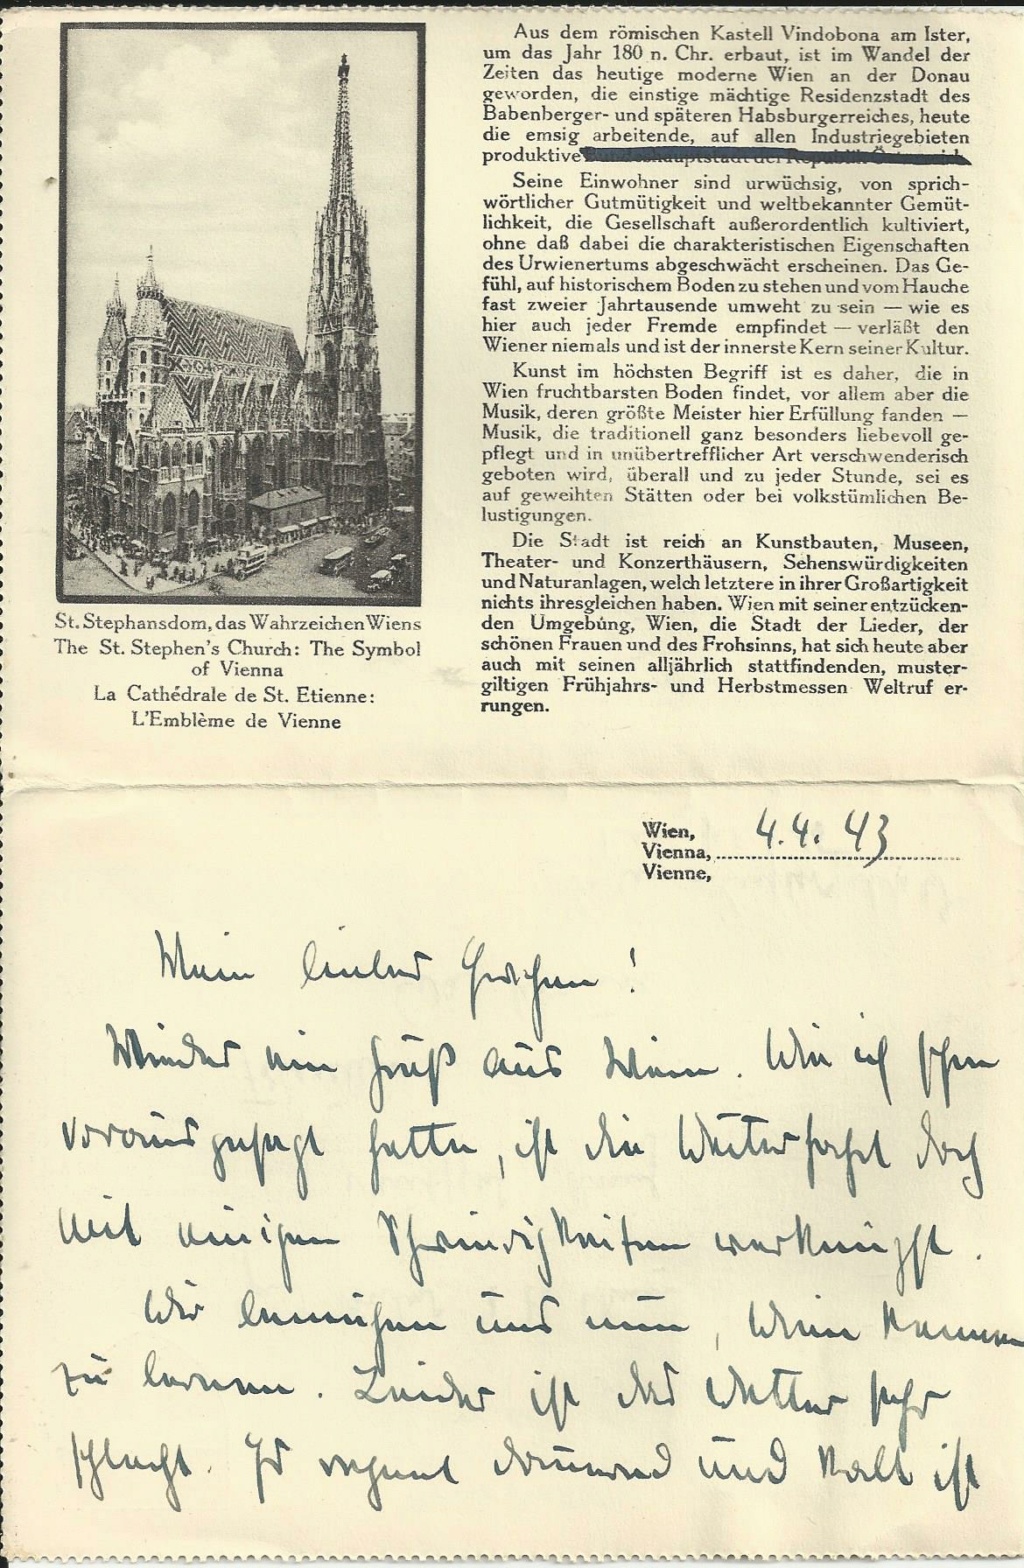 Aus dem römischen Kastell Vindobona am Ister,
um das Jahr 180 n. Chr. erbaut, ist im Wandel der
Zeiten das heutige moderne Wien an der Donau
geworden, die einstige mächtige Residenzstadt des
Babenberger- und späteren Habsburgerreiches, heute
die emsig arbeitende, auf allen Industriegebieten
produktive Bundeshauptstadt der Republik Österreich
Seine Einwohner sind urwüchsig, von sprich-
wörtlicher Gutmütigkeit und weltbekannter Gemüt-
lichkeit, die Gesellschaft außerordentlich kultiviert,
ohne daß dabei die charakteristischen Eigenschaften
des Urwienertums abgeschwächt erscheinen. Das Ge-
fühl, auf historischem Boden zu stehen und vom Hauche
fast zweier Jahrtausende umweht zu sein — wie es
hier auch jeder Fremde empfindet — verläßt den
Wiener niemals und ist der innerste Kern seiner Kultur.
Kunst im höchsten Begriff ist es daher, die in
Wien fruchtbarsten Boden findet, vor allem aber die
Musik, deren größte Meister hier Erfüllung fanden —
Musik, die traditionell ganz besonders liebevoll ge-
pflegt und in unübertrefflicher Art verschwenderisch
geboten wird, überall und zu jeder Stunde, sei es
auf geweihten Stätten oder bei volkstümlichen Be-
lustigungen.
Die Stadt ist reich an Kunstbauten, Museen,
Theater- und Konzerthäusern, Sehenswürdigkeiten
und Naturanlagen, welch letztere in ihrer Großartigkeit
nichts ihresgleichen haben. Wien mit seiner entzücken-
den Umgebung, Wien, die Stadt der Lieder, der
schönen Frauen und des Frohsinns, hat sich heute aber
auch mit seinen alljährlich stattfindenden, muster-
giltigen Frühjahrs- und Herbstmessen Weltruf er-
rungen.
St. Stephansdom, das Wahrzeichen Wiens
The St. Stephen's Church: The Symbol
of Vienna
La Cathédrale de St. Etienne:
L'Emblème de Vienne
Wien,
Vienna, 4.4.43
Vienne,
Mein lieber !
Wieder ein Gruß aus Wien. Wie ich schon
vorausgesagt hatte, ist die Weiterfahrt doch
mit einigen Schwierigkeiten verknüpft.
Wir bemühen uns nun, Wien kennen
zu lernen. Leider ist das Wetter sehr
schlecht. Es regnet dauernd und kalt ist